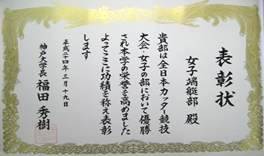 表彰状
女子端艇部 殿
貴部は全日本カッター競技
大会・女子の部において優勝
され本学の栄誉を高めました
よってここに功績を称え表彰
します
平成二十四年三月十九日
神戸大学長 福田秀樹